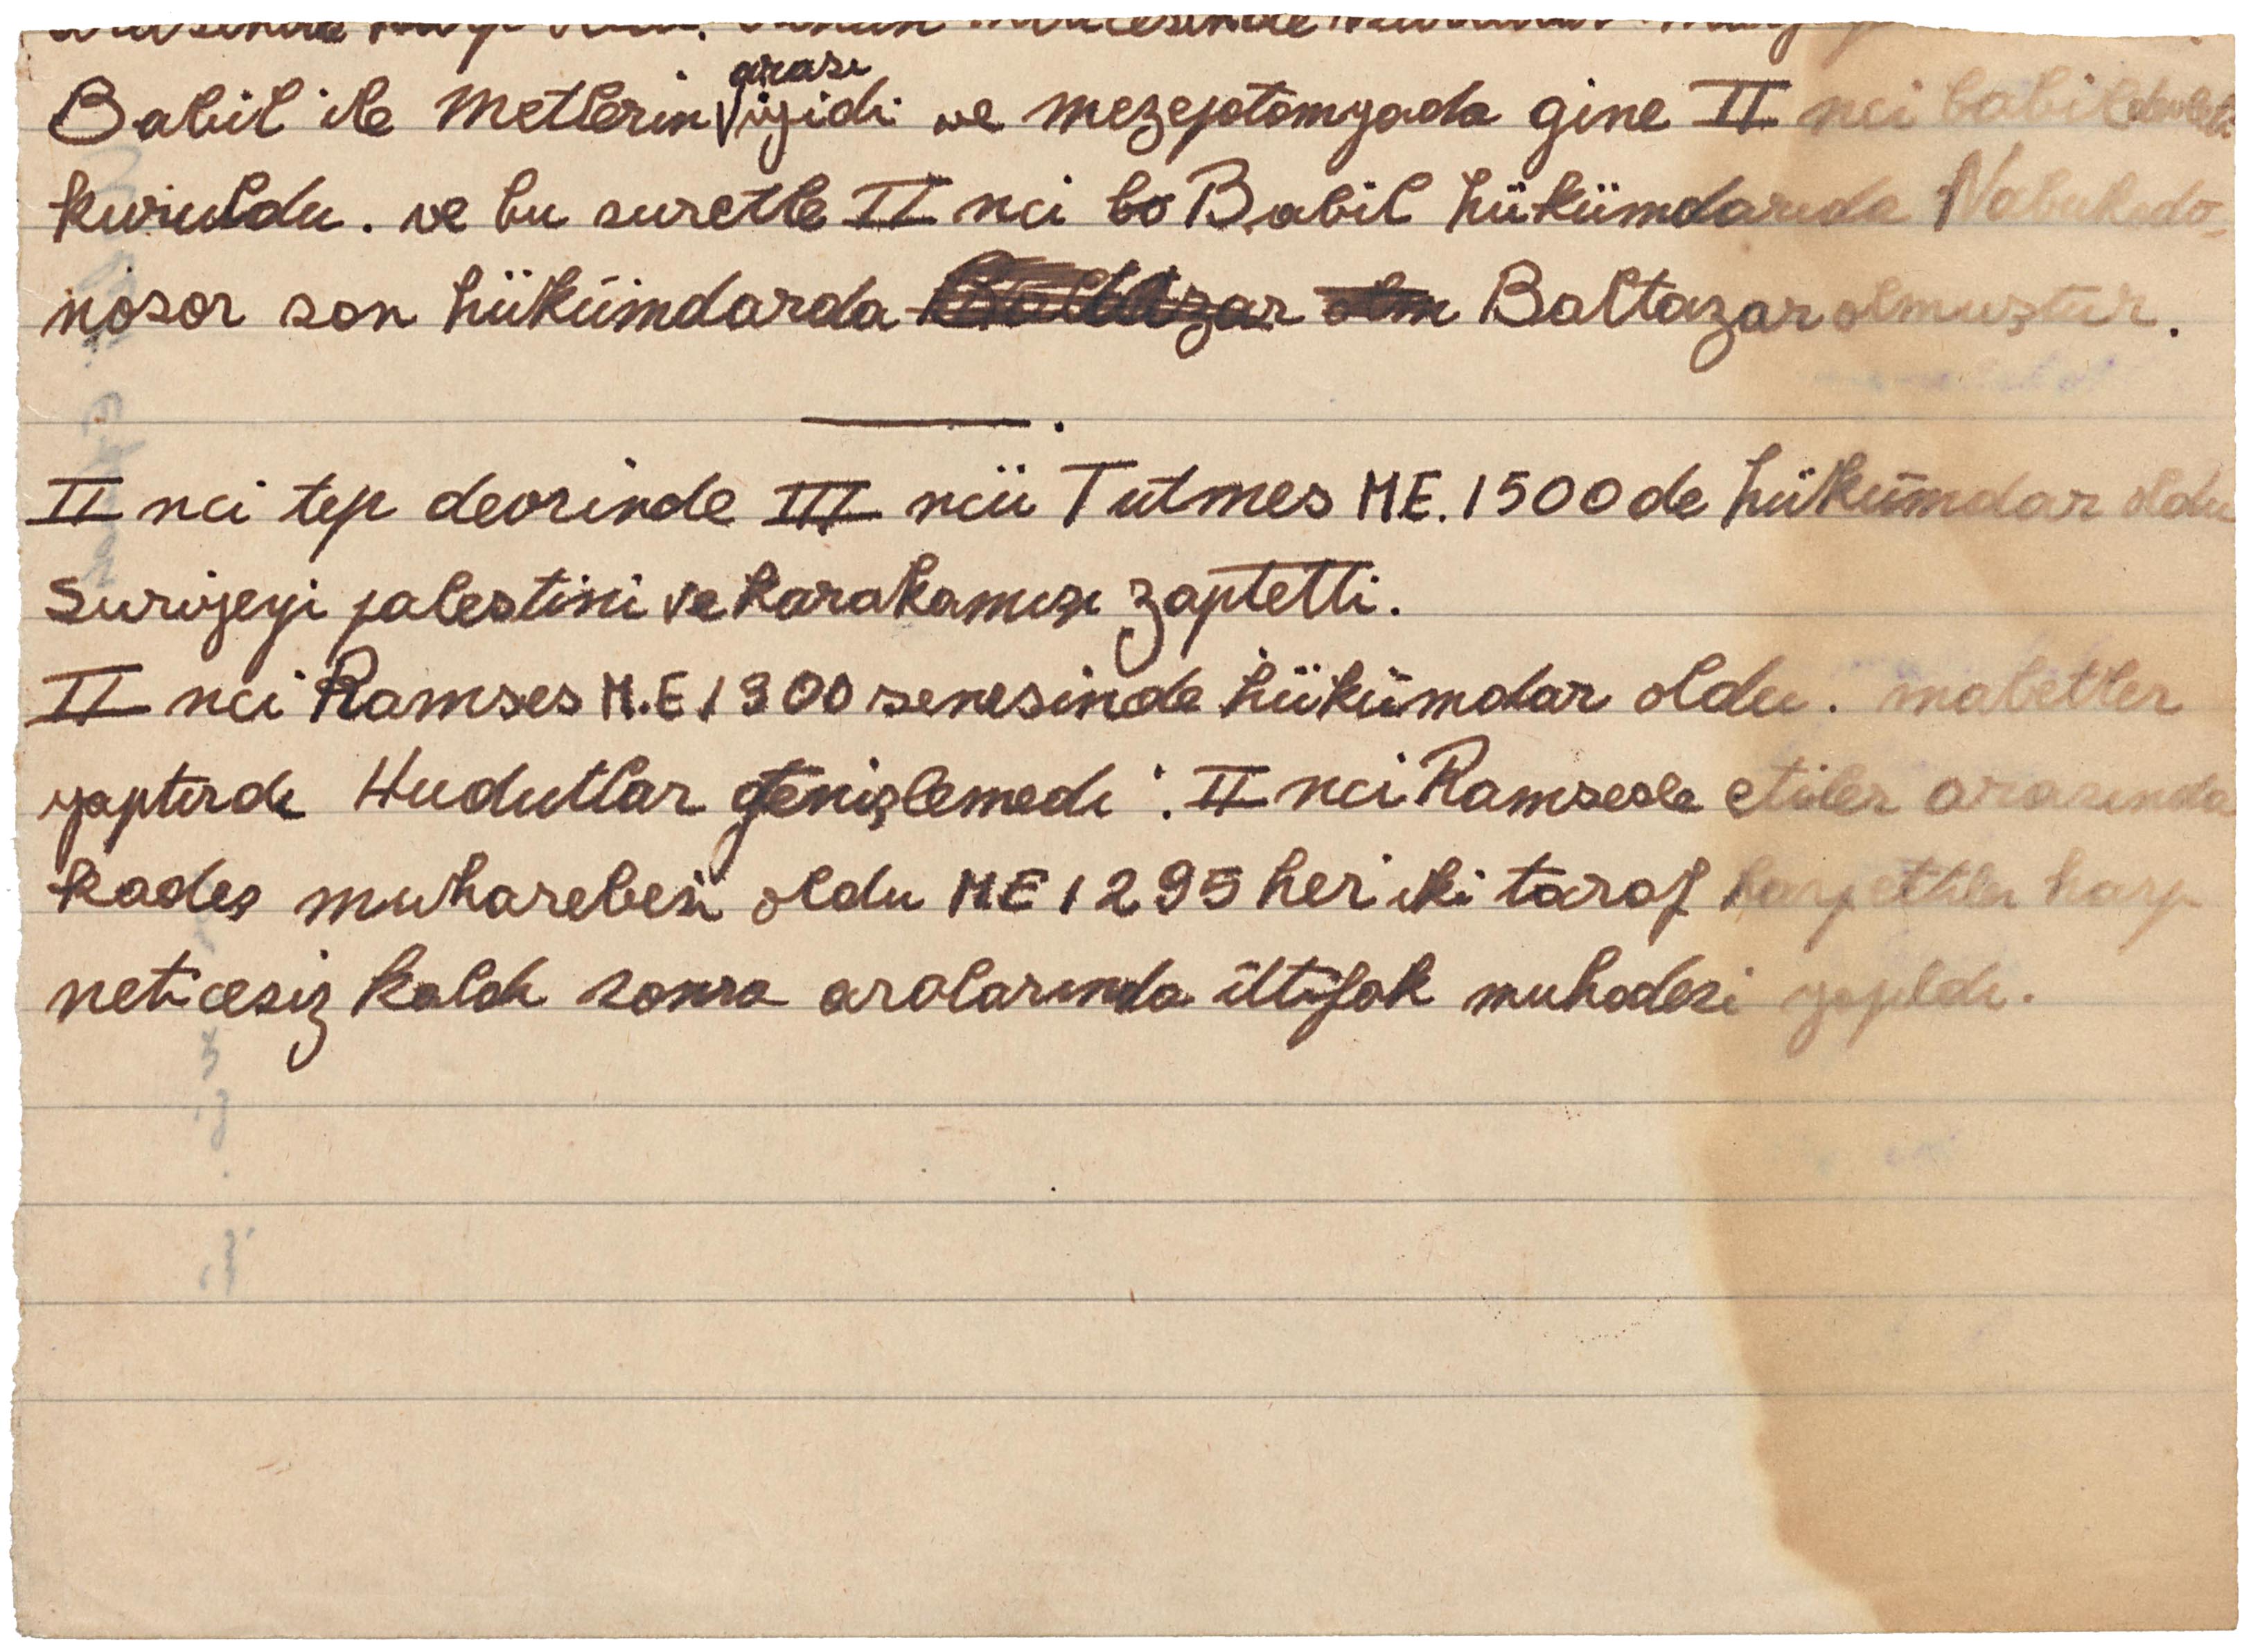 Babil ile Metlerin arası iyidi ve mezepotomyada gine II nci babil devleti
kuruldu. ve bu suretle II nci bo Babil hükümdarıda Nabukado-
nosor son hükümdarda Baltazar olmuştur.
II nci tep devrinde III ncü Tutmes M.E. 1500 de hükümdar oldu
Suriyeyi palestini ve karakamışı zaptetti.
II nci Ramses M.E 1300 senesinde hükümdar oldu. mabetler
yaptırdı Hudutlar genişlemedi. II nci Ramsesle etiler arasında
kades muharebesi oldu ME 1295 her iki taraf harpettiler harp
neticesiz kaldı sonra aralarında ittifak muhadesi yapıldı.